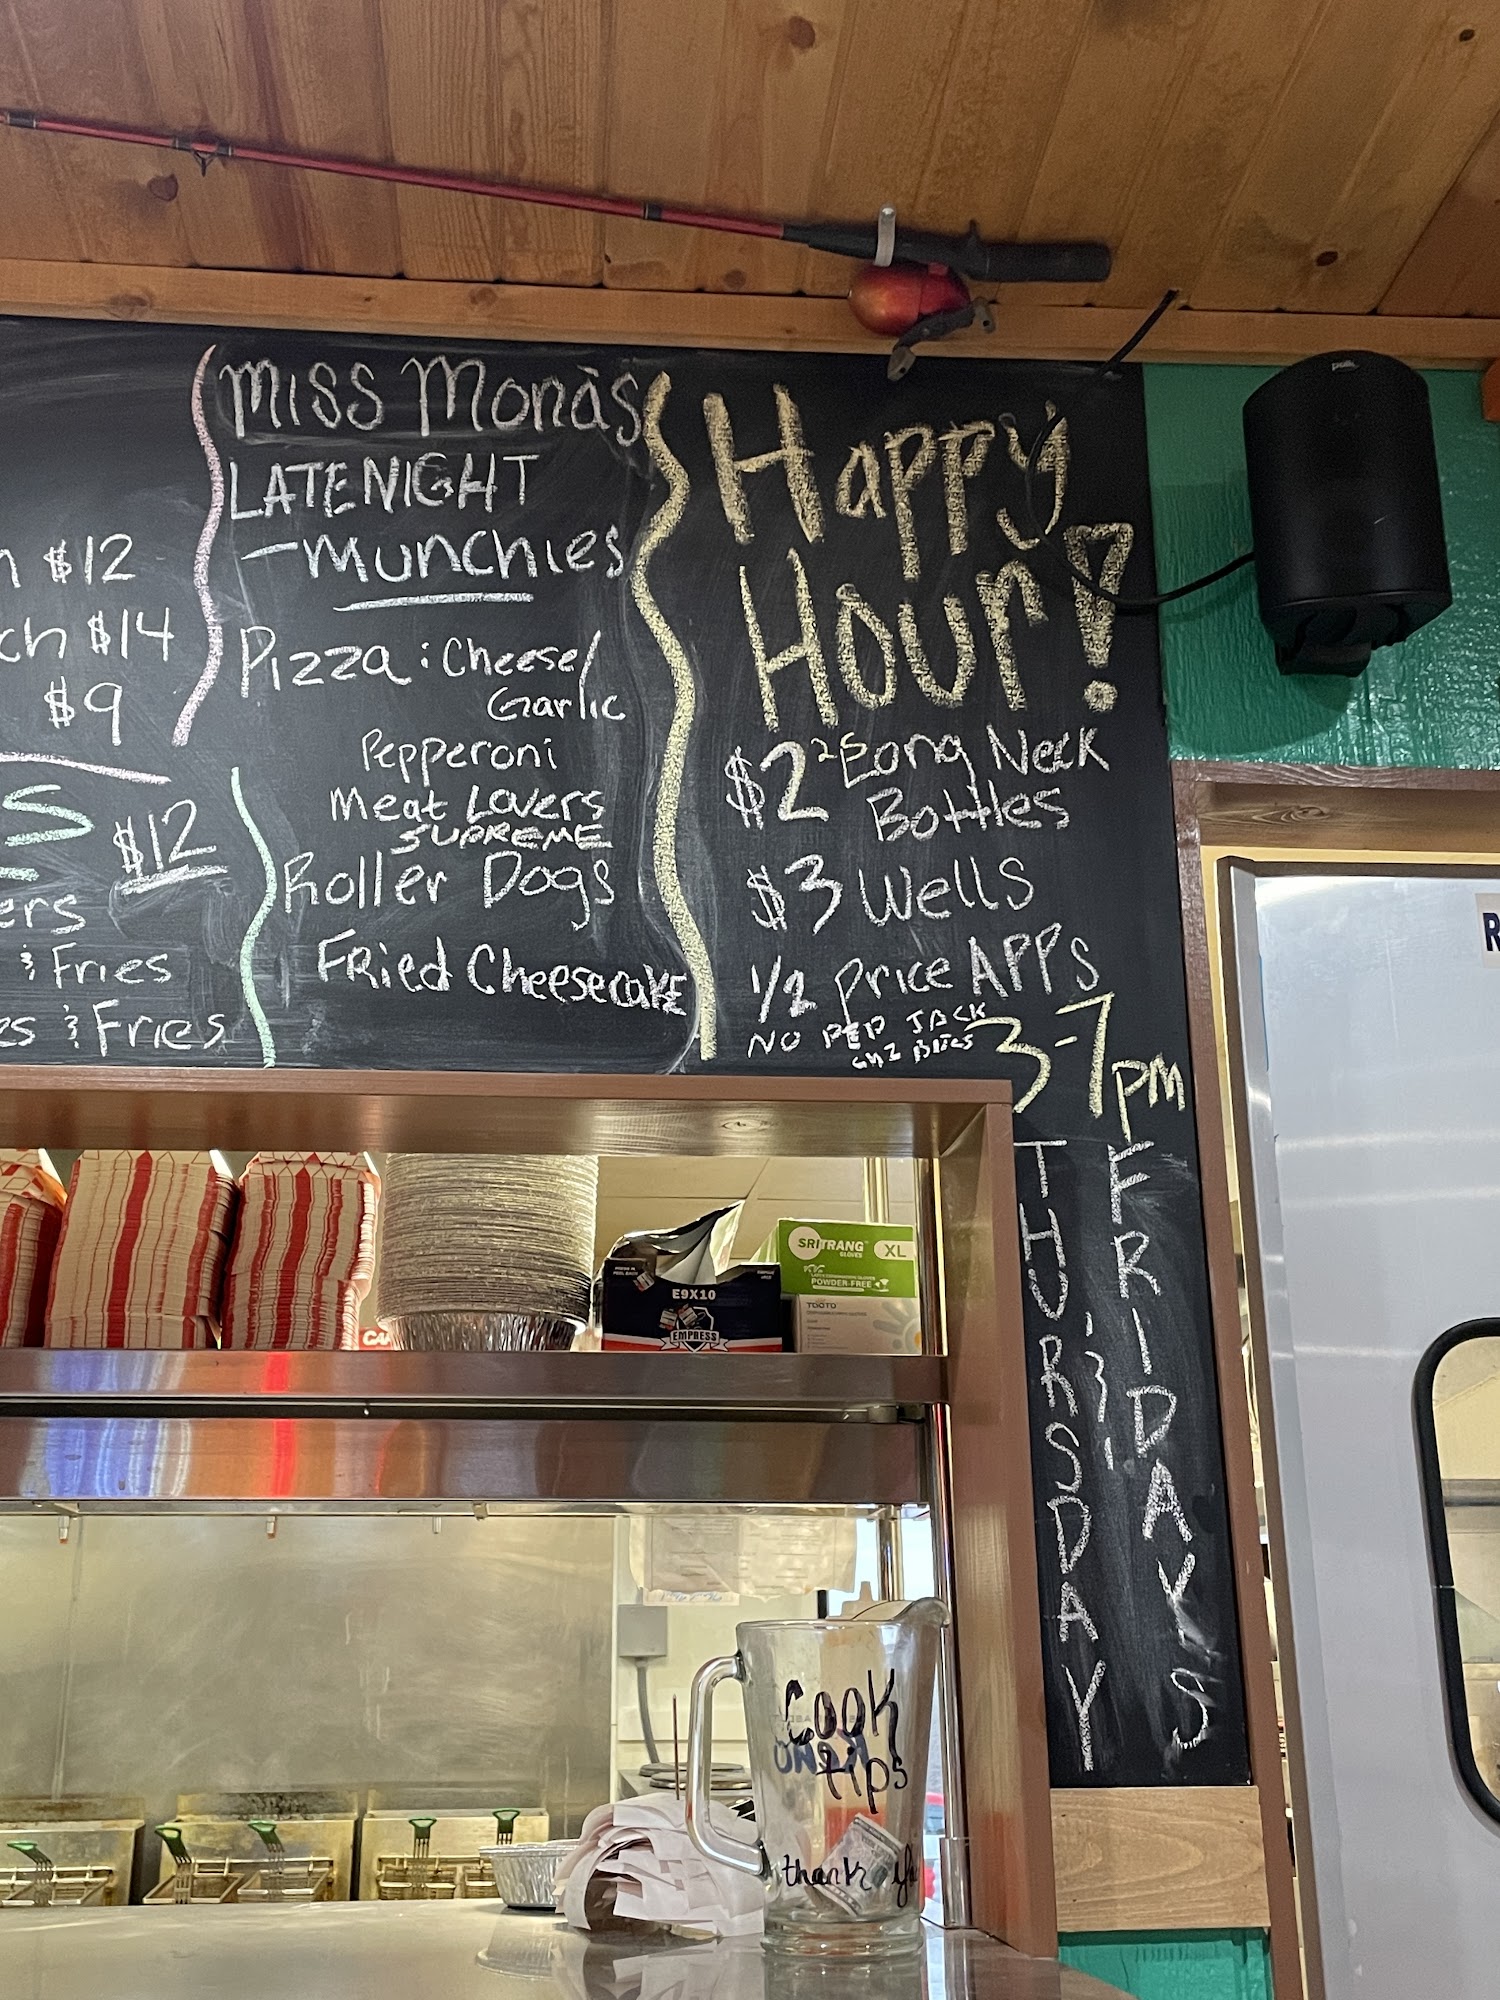 $12
$14
$9
$12
ers
& Fries
es & Fries
Miss Mona's
LATE NIGHT
-munchies
Pizza: Cheese/
Garlic
Pepperoni
Meat Lovers
SUPREME
Roller Dogs
Fried Cheesecake
Happy
Hour!
$2 25 Long Neck
Bottles
$3 Wells
1/2 Price APPS
NO PEP JACK
CHZ BITES
3-7pm
THURSDAY
&
FRIDAYS
polk
SRITRANG
GLOVES
XL
POWDER-FREE
E9X10
EMPRESS
Cook
tips
thank you
KENO
R